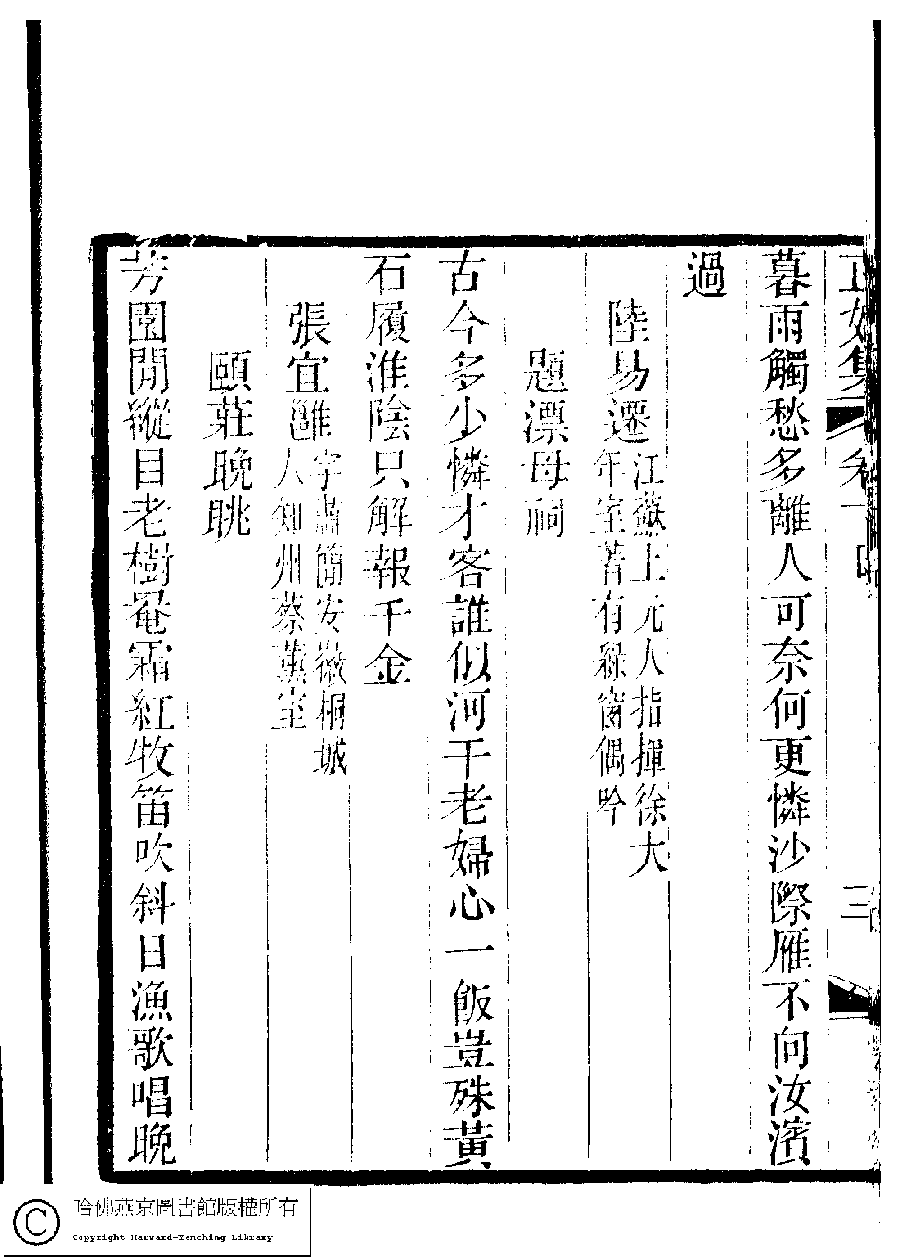 正始集 卷一 三
暮雨觸愁多離人可奈何更憐沙際雁不向汝濱
過
陸易遷 江蘇上元人指揮徐大
年室著有綠窗偶吟
題漂母祠
古今多少憐才客誰似河干老婦心一飯豈殊黃
石履淮陰只解報千金
張宜雝 字肅簡安徽桐城
人知州蔡薰室
頤莊晚眺
芳園閒縱目老樹罨霜紅牧笛吹斜日漁歌唱晚
哈佛燕京圖書館版權所有
Copyright Harvard-Yenching Library